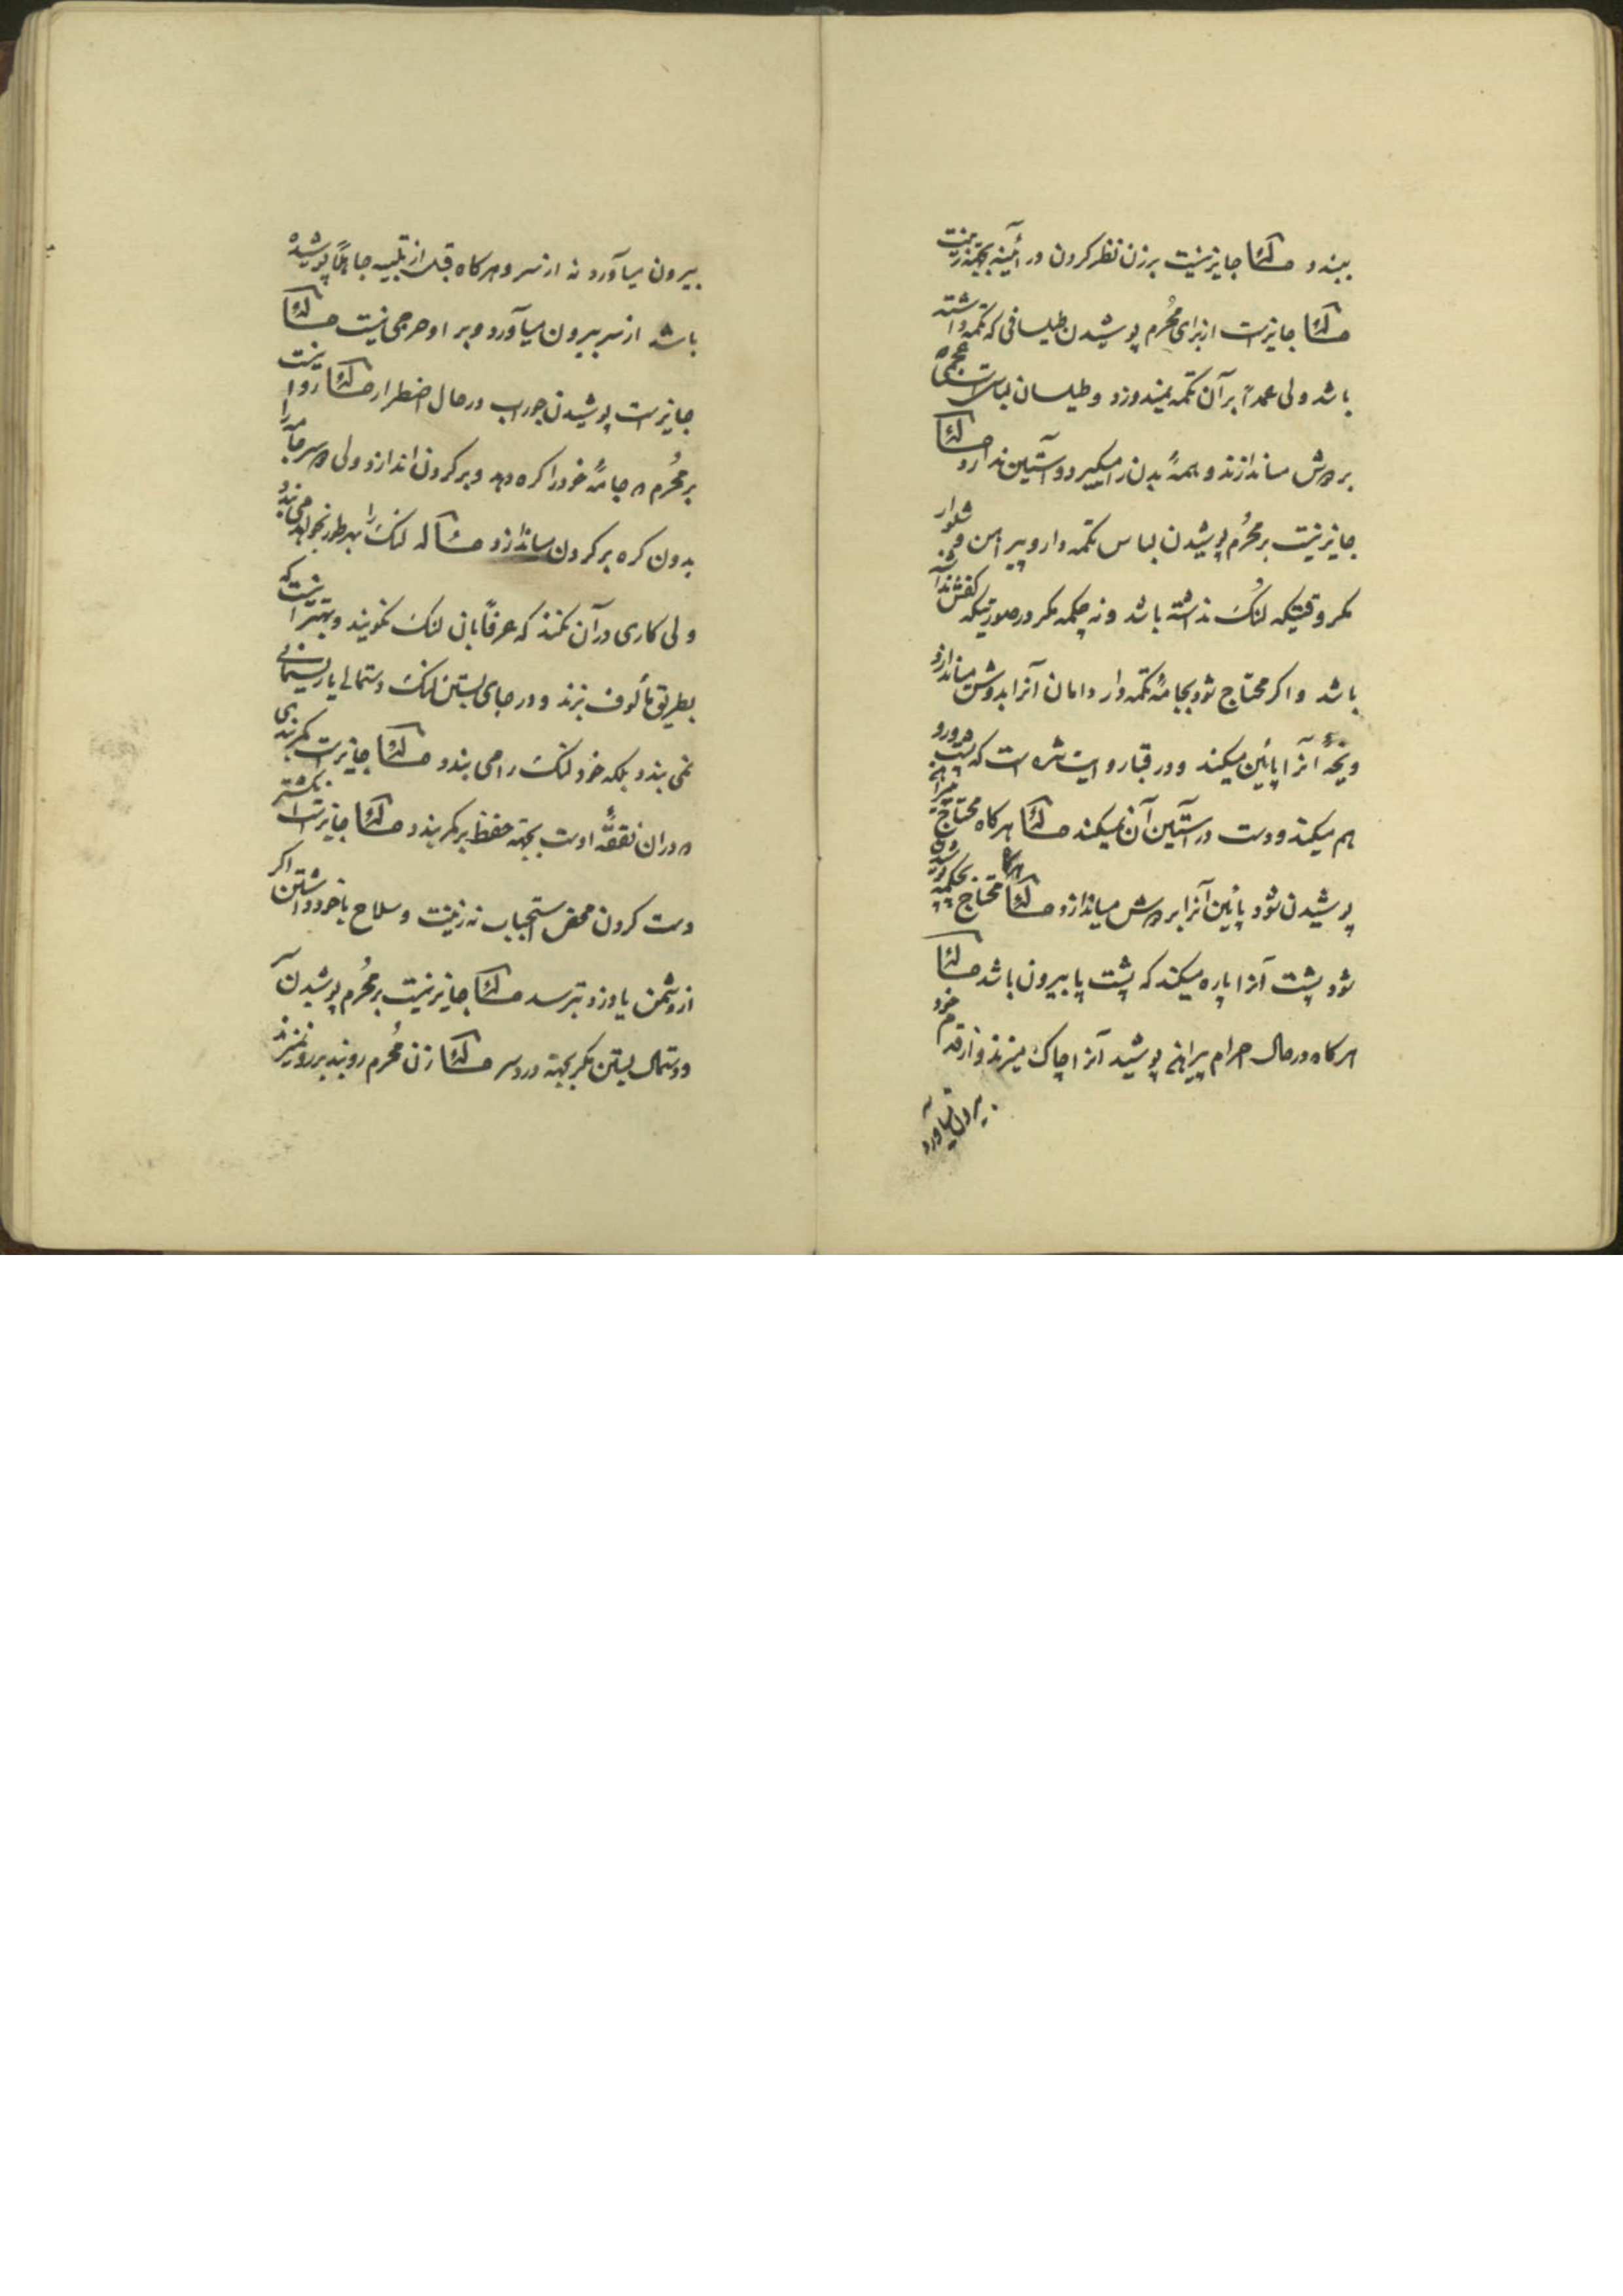 ببندد مسئله جایز نیست بر زن نظر کردن در آئینه بجهة زینت
مسئله جایزست از برای مُحُرم پوشیدن طیلسانی که تکمه داشته
باشد ولی عمداً بر آن تکمه نمیدوزد و طیلسان لباس عجمی است
بر دوش میاندازند و همهٔ بدن را میگیرد و آستین ندارد مسئله
جایز نیست بر محُرم پوشیدن لباس تکمه دار و پیراهن و شلوار
مکر وقتیکه لُنک نداشته باشد و نه چکمه مکر در صورتیکه کفش نداشته
باشد و اکر محتاج شود بجامهٔ تکمه دار دامان آنرا بدوش میاندازد
و یخهٔ آنرا پائین میکند و در قبا روایت شده است که پشت و رو
هم میکند و دست در آستین آن نمیکند مسئله هرکاه محتاج
پوشیدن شود پائین آنرا بر دوش میاندازد مسئله هرکاه محتاج بچکمه پوشیدن
شود پشت آنرا پاره میکند که پشت پا بیرون باشد مسئله
هرکاه در حال احرام پیراهنی پوشید آنرا چاک میزند و از قدم خود
بیرون میآورد
بیرون میآورد نه از سر و هرکاه قبل از تلبیه جاهلاً پوشیده
باشد از سر بیرون میآورد و بر او حرجی نیست مسئله
جایزست پوشیدن جوراب در حال اضطرار مسئله روا نیست
بر مُحُرم که جامهٔ خود را کره دهد و بر کردن اندازد ولی سر جامه را
بدون کره بر کردن میاندازد مسئله لنک را بهر طور بخواهد می بندد
ولی کاری در آن نکند که عرفاً بآن لنک نکویند و بهتر اینست که
بطریق مألوف بزند و در جای بستن لنک دستمالی یا ریسمانی
نمی بندد بلکه خود لنک را می بندد مسئله جایزست کمربندی
که در آن نفقهٔ اوست بجهة حفظ بر کمر بندد مسئله جایزست انکشتر
دست کردن محض استحباب نه زینت و سلاح با خود داشتن اکر
از دشمن یا دزد بترسد مسئله جایز نیست بر مُحُرم پوشیدن
و دستمال بستن مکر بجهة درد سر مسئله زن مُحُرم روبند بر رو نمیزند